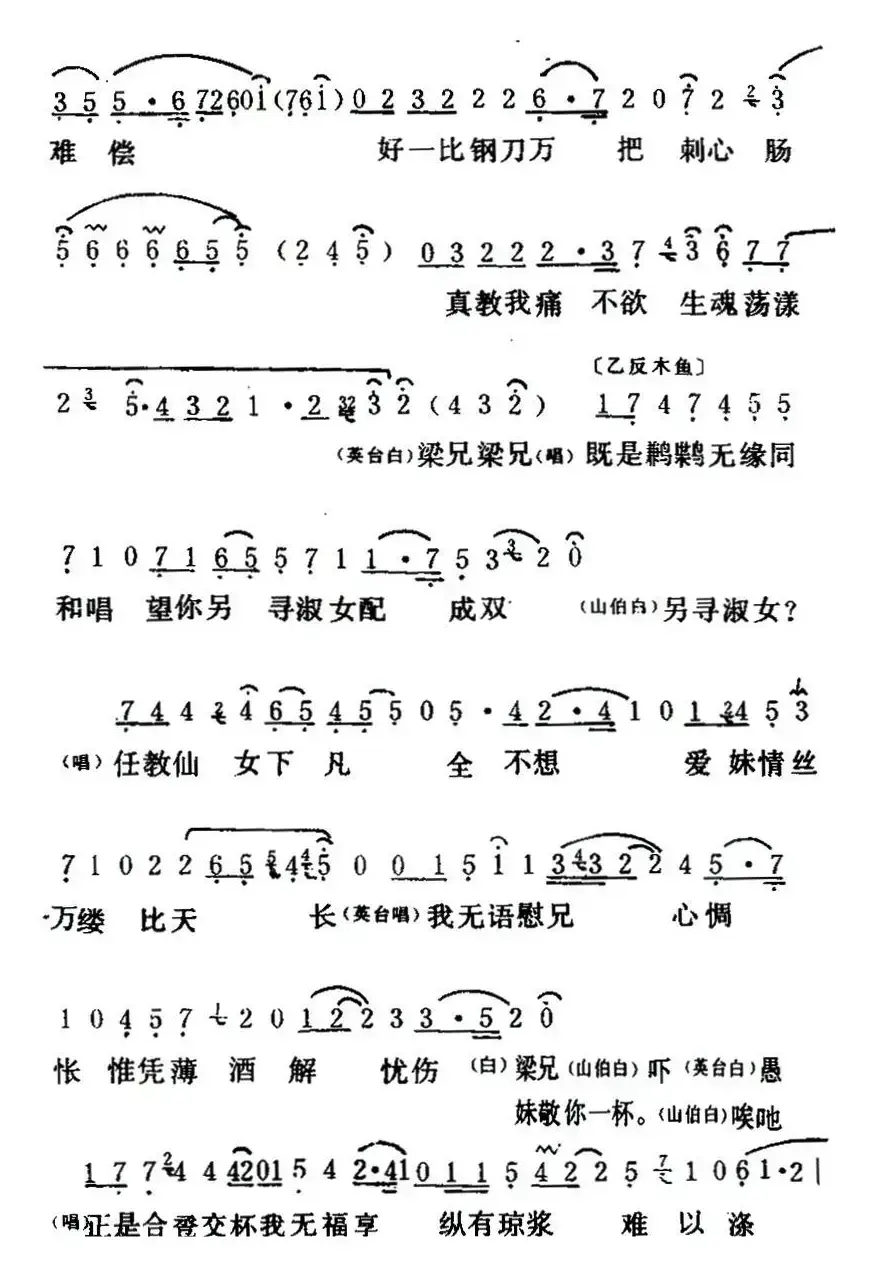 3 5 5 · 6 7 2 6 0 i (7 6 i) 0 2 3 2 2 2 6 · 7 2 0 7 2 2 3
难 偿 好一比钢刀万 把 刺心 肠
5 6 6 6 6 5 5 (2 4 5) 0 3 2 2 2 2 · 3 7 4 3 6 7 7
真教我痛 不欲 生魂荡漾
〔乙反木鱼〕
2 3 5 · 4 3 2 1 · 2 32 3 2 (4 3 2) 1 7 4 7 4 5 5
(英台白)梁兄梁兄(唱)既是鹣鹣无缘同
7 1 0 7 1 6 5 5 7 1 1 · 7 5 3 3 2 0
和唱 望你另 寻淑女配 成双 (山伯白)另寻淑女?
7 4 4 2 4 6 5 4 5 5 0 5 · 4 2 · 4 1 0 1 2 4 5 3
(唱)任教仙 女下 凡 全 不想 爱 妹情丝
7 1 0 2 2 6 5 5 4 4 5 0 0 1 5 i 1 3 4 3 2 2 4 5 · 7
万缕 比天 长(英台唱)我无语慰兄 心惆
1 0 4 5 7 1 2 0 1 2 2 3 3 · 5 2 0
怅 惟凭薄 酒 解 忧伤 (白)梁兄(山伯白)吓(英台白)愚
妹敬你一杯。(山伯白)唉吔
1 7 7 2 4 4 4 2 0 1 5 4 2 · 4 1 0 1 1 5 4 2 2 5 7 1 0 6 1 · 2 |
(唱)正是合卺交杯我无福享 纵有琼浆 难 以 涤